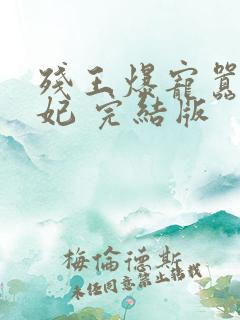 残王爆宠嚣
妃 完结版
梅伦德斯
未经同意禁止转载